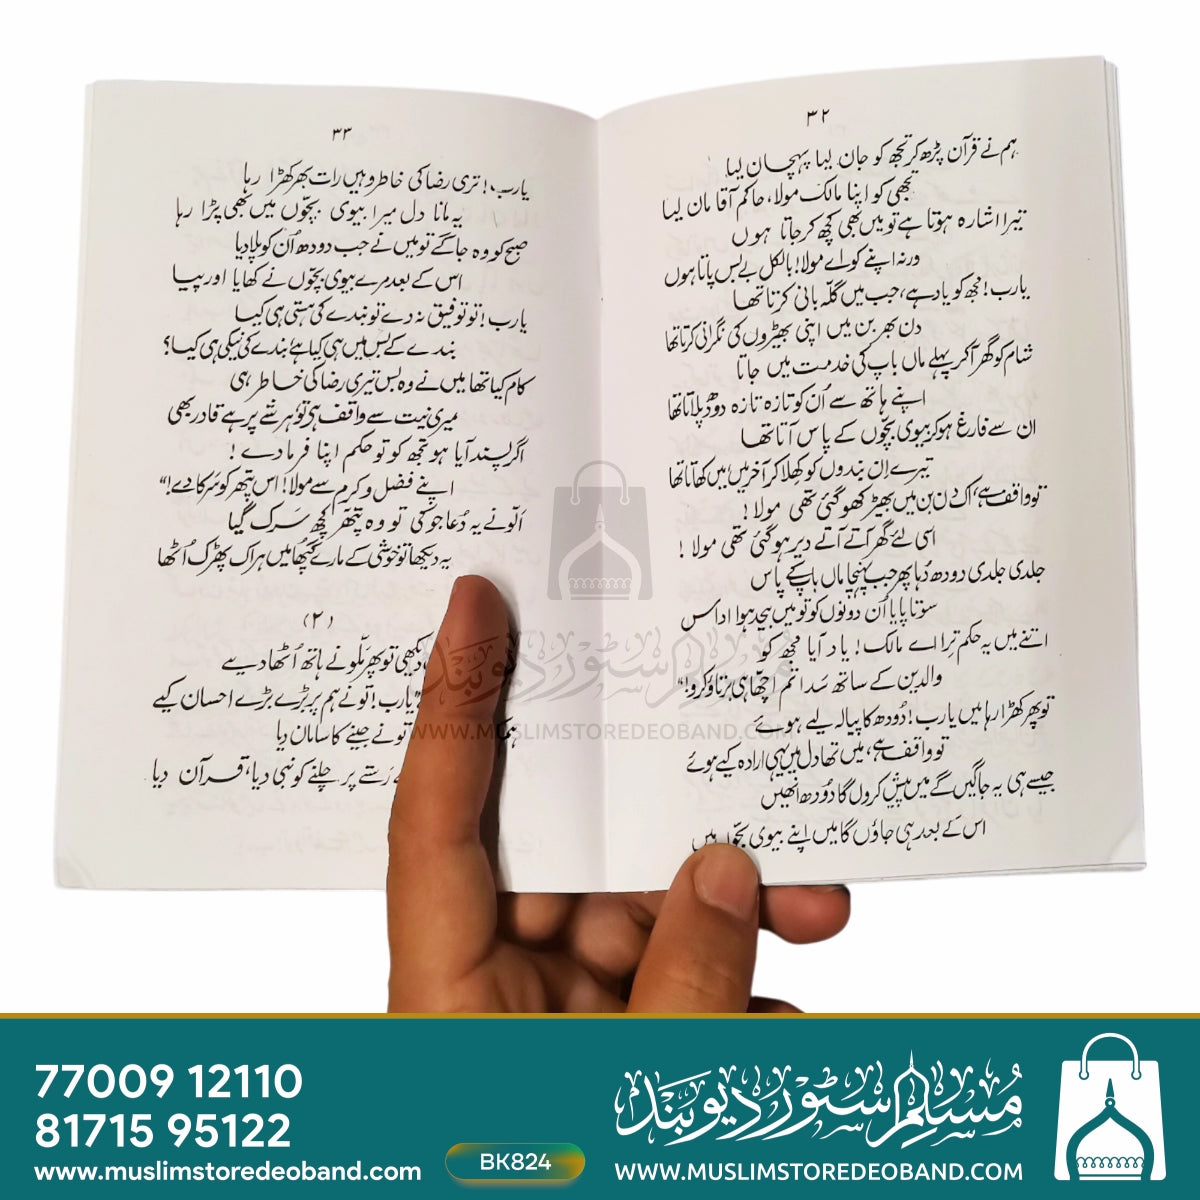 ۳۲
ہم نے قرآن پڑھ کر تجھ کو جان لیا پہچان لیا
تجھی کو اپنا مالک مولا، حاکم آقا مان لیا
تیرا اشارہ ہوتا ہے تو میں بھی کچھ کر جاتا ہوں
ورنہ اپنے کو اے مولا! بالکل بے بس پاتا ہوں
یارب! تجھ کو یاد ہے، جب میں گلّہ بانی کرتا تھا
دن بھر بن میں اپنی بھیڑوں کی نگرانی کرتا تھا
شام کو گھر آکر پہلے ماں باپ کی خدمت میں جاتا
اپنے ہاتھ سے اُن کو تازہ تازہ دودھ پلاتا تھا
ان سے فارغ ہو کر بیوی بچّوں کے پاس آتا تھا
تیرے اِن بندوں کو کھلا کر آخر میں میں کھاتا تھا
تو واقف ہے، اک دن بن میں بھیڑ کھو گئی تھی مولا!
اسی لئے گھر آتے آتے دیر ہو گئی تھی مولا!
جلدی جلدی دودھ دُہا پھر جب پہنچا ماں باپ کے پاس
سوتا پایا اُن دونوں کو تو میں بیحد ہوا اداس
اتنے میں یہ حکم ترا اے مالک! یاد آیا مجھ کو
والدین کے ساتھ سَدا تم اچھّا ہی برتاؤ کرو!"
تو پھر کھڑا رہا میں یارب! دُودھ کا پیالہ لیے ہوئے
تو واقف ہے، میں تھا دل میں یہی ارادہ کیے ہوئے
جیسے ہی یہ جاگیں گے میں پیش کردوں گا دُودھ انھیں
اس کے بعد ہی جاؤں گا میں اپنے بیوی بچّوں میں
۳۳
یارب! تری رضا کی خاطر وہیں رات بھر کھڑا رہا
یہ مانا دل میرا بیوی بچّوں میں بھی پڑا رہا
صبح کو وہ جاگے تو میں نے جب دودھ اُن کو پلا دیا
اس کے بعد مرے بیوی بچّوں نے کھایا اور پیا
یارب! تو توفیق نہ دے تو بندے کی ہستی ہی کیا
بندے کے بس میں ہی کیا ہے بندے کی نیکی ہی کیا؟
کام کیا تھا میں نے وہ بس تیری رضا کی خاطر ہی
میری نیت سے واقف ہی تو ہر شے پر ہے قادر بھی
اگر پسند آیا ہو تجھ کو تو حکم اپنا فرما دے!
اپنے فضل و کرم سے مولا! اس پتھر کو سَرکا دے!"
اَلّو نے یہ دُعا جو کی تو وہ پتھّر کچھ سَرک گیا
یہ دیکھا تو خوشی کے مارے گچھا میں ہر اک پھڑک اُٹھا
(۲)
دیکھی تو پھر مَلّو نے ہاتھ اُٹھا دیے
"یارب! تو نے ہم پر بڑے بڑے احسان کیے
تو نے جینے کا سامان دیا
رَستے پر چلنے کو نبی دیا، قرآن دیا
مسلم سٹور دیوبند
WWW.MUSLIMSTOREDEOBAND.COM
77009 12110
81715 95122
www.muslimstoredeoband.com
BK824
مسلم سٹور دیوبند
WWW.MUSLIMSTOREDEOBAND.COM